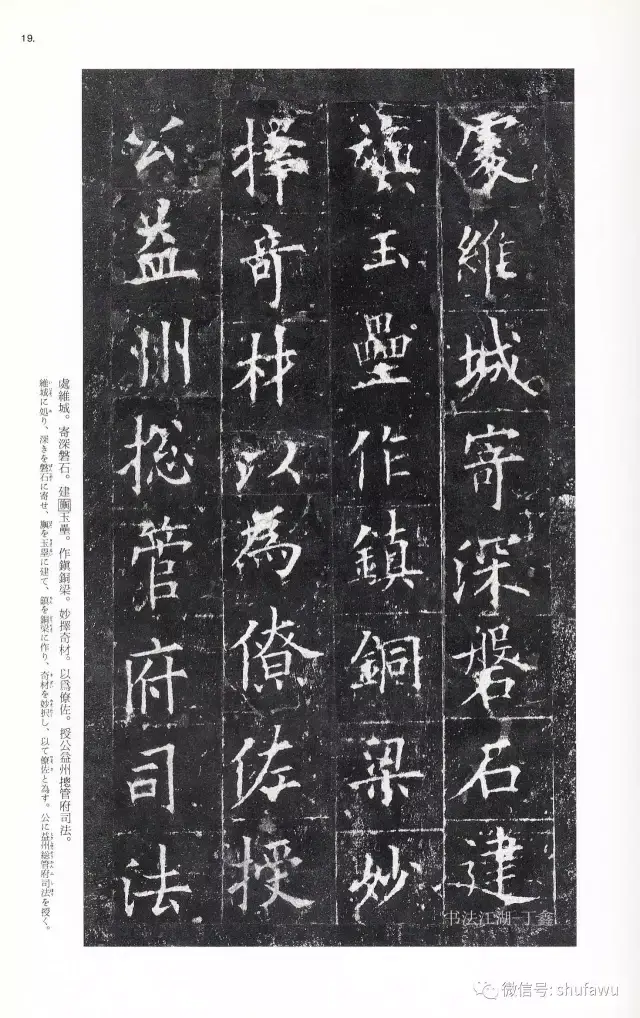 19.
處維城寄深磐石建
旟玉壘作鎮銅梁妙
擇奇材以為僚佐授
公益州捴管府司法
處維城。寄深磐石。建旟玉壘。作鎭銅梁。妙擇奇材。以爲僚佐。授公益州摠管府司法。
維城に処り、深きを磐石に寄せ、旟を玉塁に建て、鎮を銅梁に作り、奇材を妙択し、以て僚佐と為す。公に益州総管府司法を授く。
书法江湖-丁鑫
微信号: shufawu